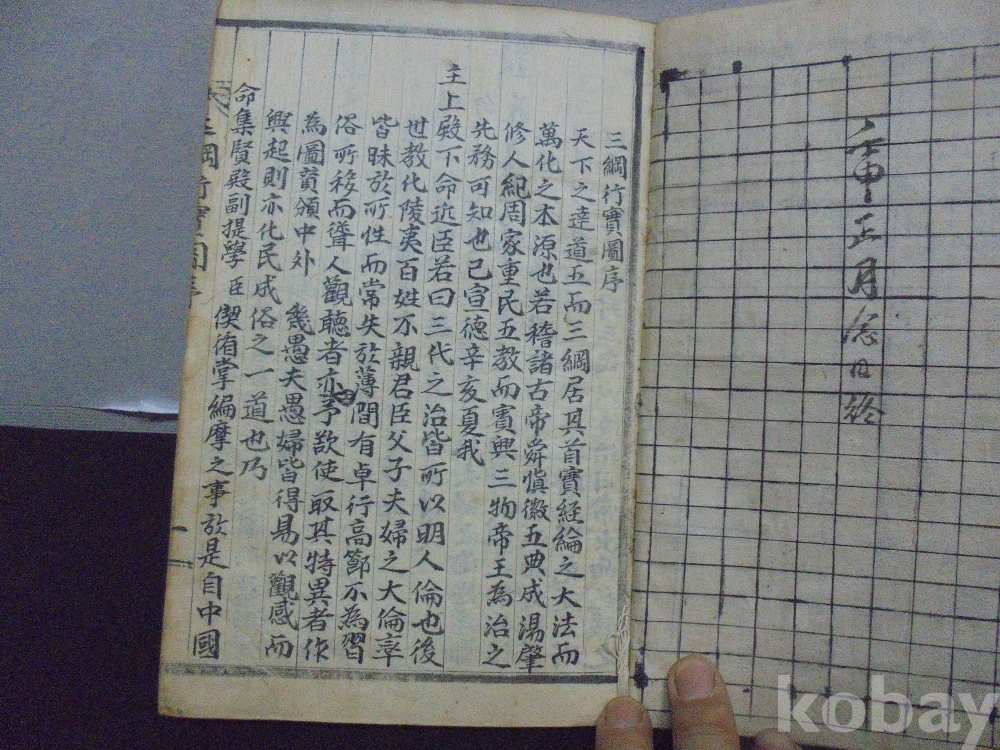 壬申正月念日終
三綱行實圖序
天下之達道五而三綱居其首實經綸之大法而
萬化之本源也若稽諸古帝舜愼徽五典成湯肇
修人紀周家重民五教而賓興三物帝王為治之
先務可知也已宣德辛亥夏我
主上殿下命近臣若曰三代之治皆所以明人倫也後
世教化陵夷百姓不親君臣父子夫婦之大倫率
皆昧於所性而常失於薄間有卓行高節不為習
俗所移而聳人觀聽者亦予欲使取其特異者作
為圖贊頒中外幾愚夫愚婦皆得易以觀感而
興起則亦化民成俗之一道也乃
命集賢殿副提學臣偰侑掌編摩之事於是自中國
三綱行實圖序
一
kobay